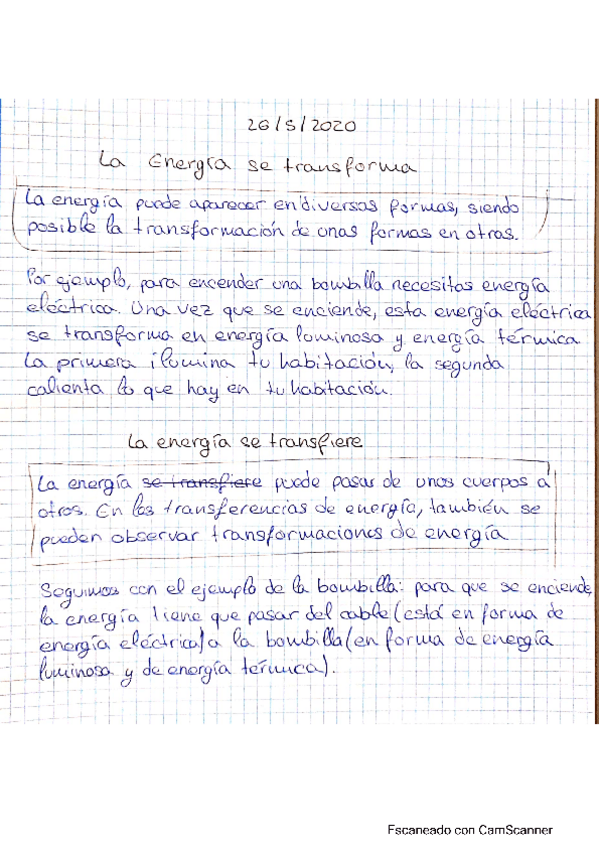 26/5/2020
La Energía se transforma
La energía puede aparecer en diversas formas, siendo
posible la transformación de unas formas en otras.
Por ejemplo, para encender una bombilla necesitas energía
eléctrica. Una vez que se enciende, esta energía eléctrica
se transforma en energía luminosa y energía térmica
La primera ilumina tu habitación, la segunda
calienta lo que hay en tu habitación.
La energía se transfiere
La energía se transfiere puede pasar de unos cuerpos a
otros. En las transferencias de energía, también se
pueden observar transformaciones de energía
Seguimos con el ejemplo de la bombilla: para que se enciende,
la energía tiene que pasar del cable (está en forma de
energía eléctrica) a la bombilla (en forma de energía
luminosa y de energía térmica).
Escaneado con CamScanner